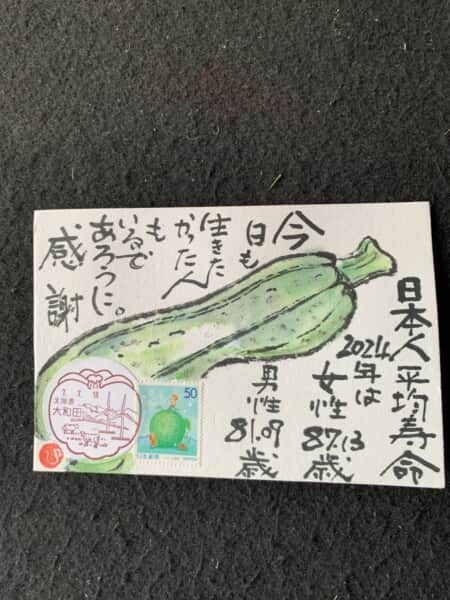 日本人平均寿命
2024年は
女性87.13歳
男性81.09歳
今
日も
生きた
かった人
も
いるで
あろうに。
感謝
50
大和田